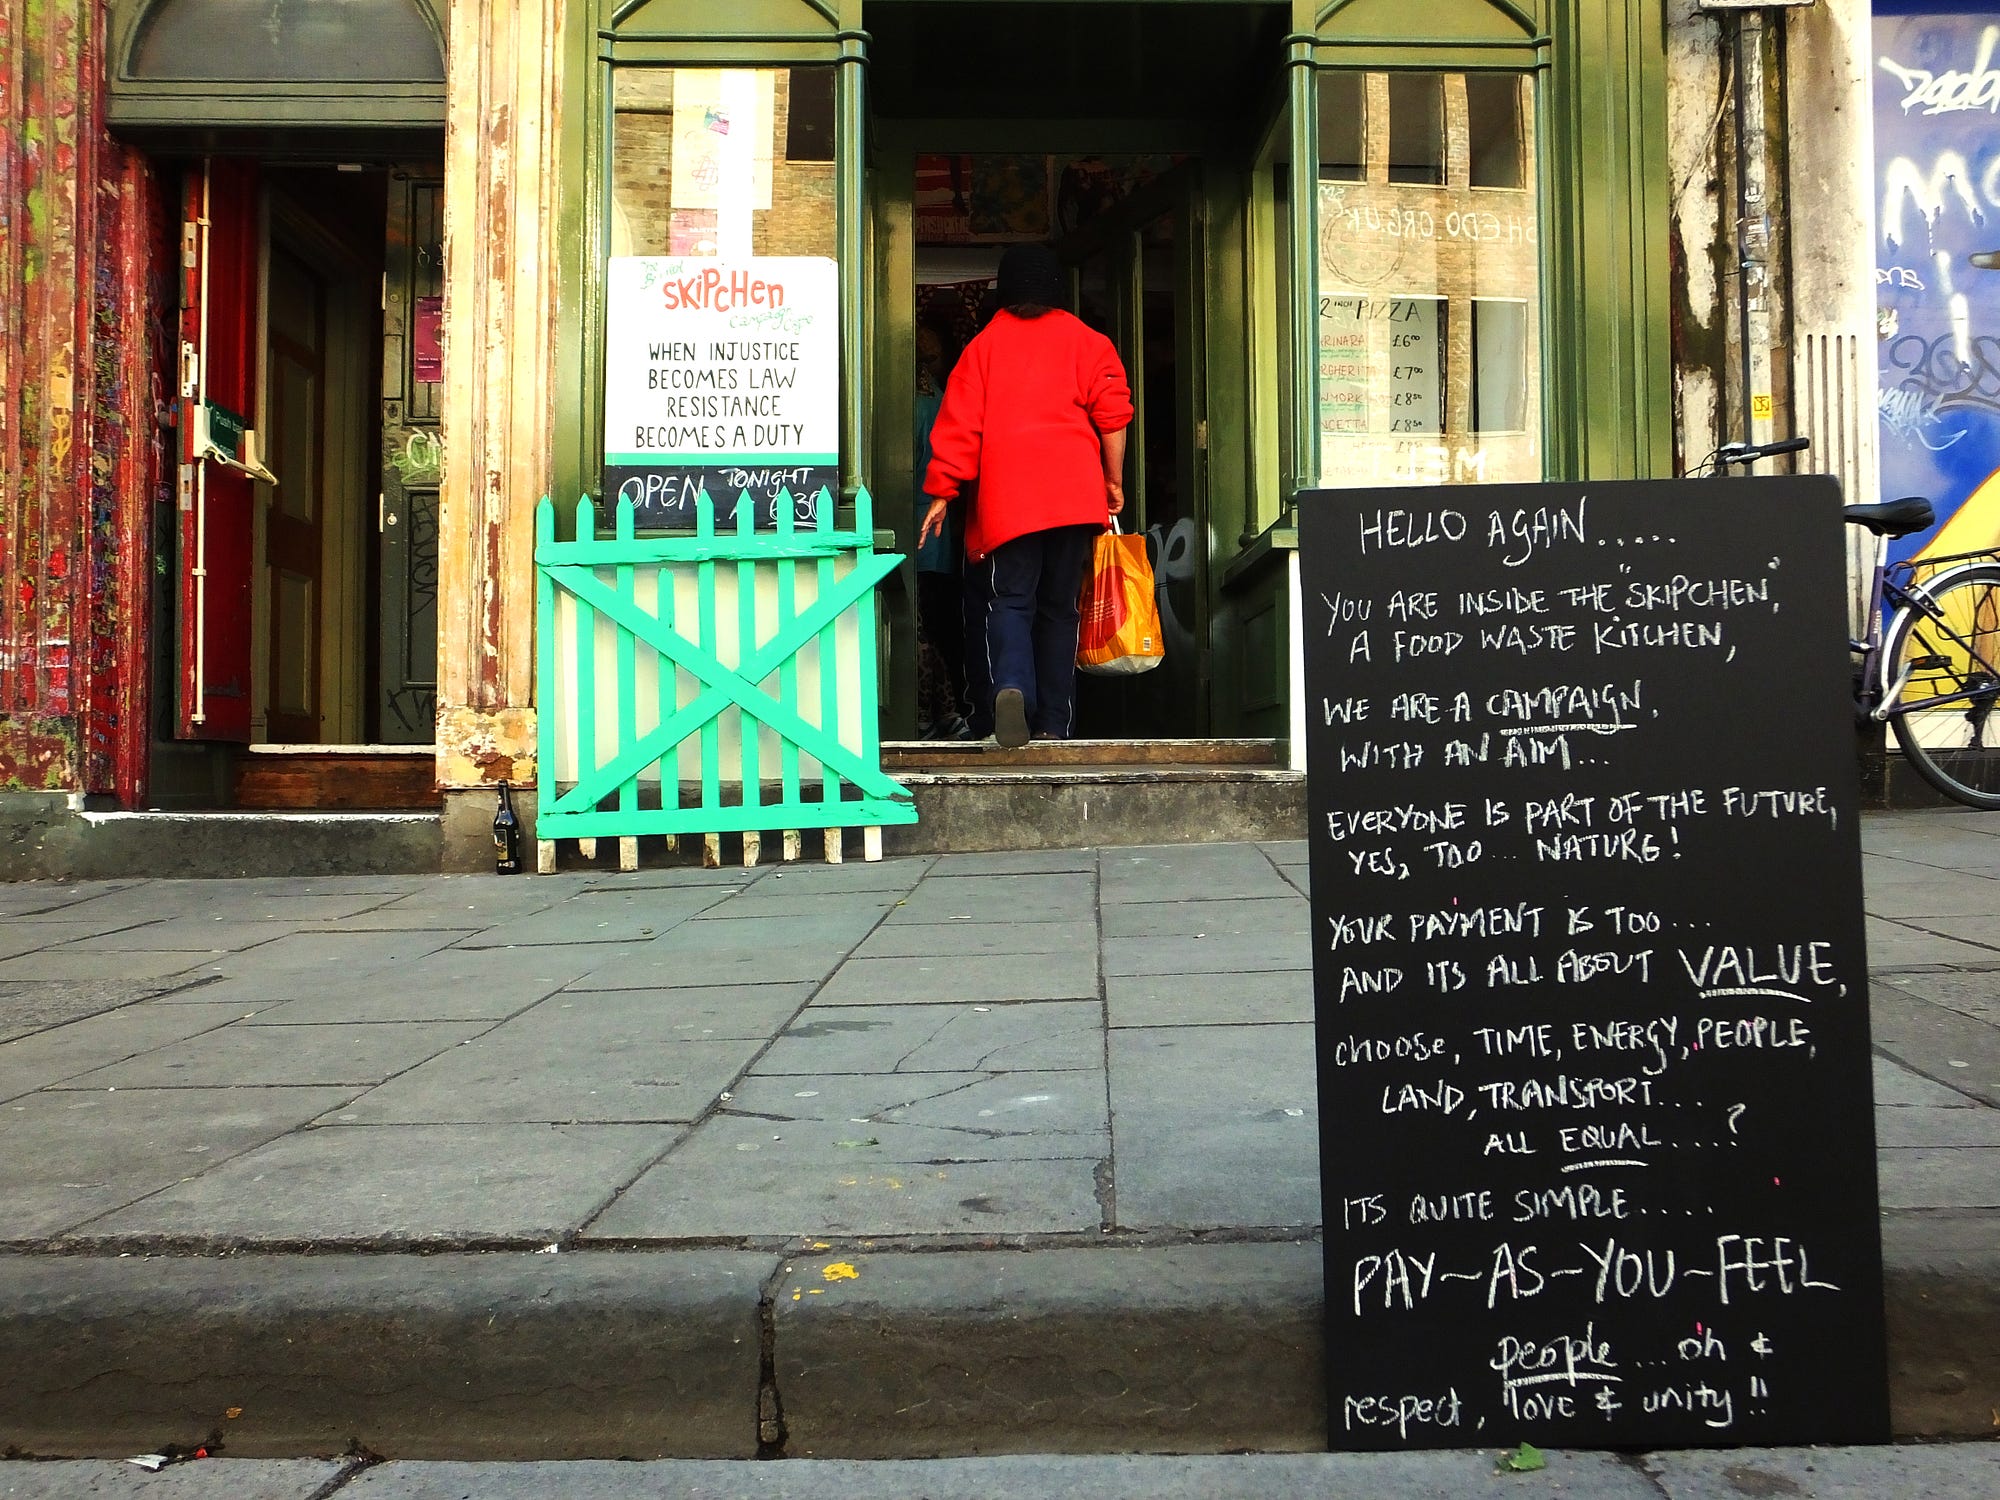 The
Bristol
SKiPCHen
Campaign Cafe
WHEN INJUSTICE
BECOMES LAW
RESISTANCE
BECOMES A DUTY
OPEN TONIGHT
630
Push bar
2 INCH PIZZA
RINARA £6⁰⁰
RGHERITA £7⁰⁰
£8⁵⁰
NCETTA £8⁵⁰
HEDO.ORG.UK
HELLO AGAIN.....
YOU ARE INSIDE THE "SKIPCHEN",
A FOOD WASTE KITCHEN,
WE ARE A CAMPAIGN,
WITH AN AIM...
EVERYONE IS PART OF THE FUTURE,
YES, TOO... NATURE!
YOUR PAYMENT IS TOO...
AND ITS ALL ABOUT VALUE,
choose, TIME, ENERGY, PEOPLE,
LAND, TRANSPORT...
ALL EQUAL....?
ITS QUITE SIMPLE....
PAY-AS-YOU-FEEL
people...oh &
respect, love & unity!!